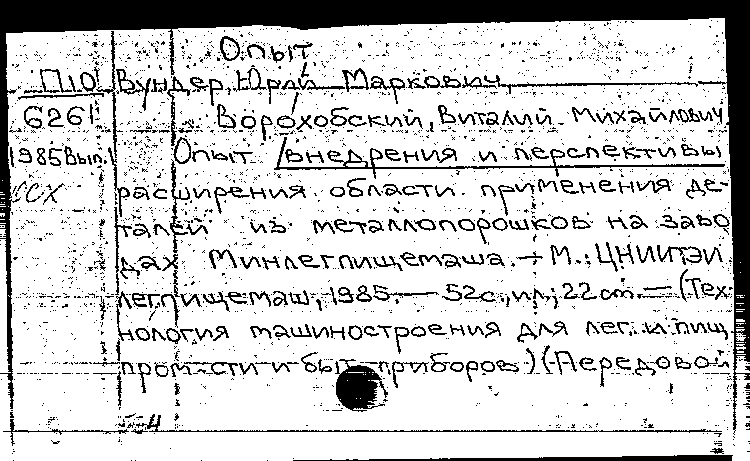 Опыт
П10 Вундер, Юрий Маркович,
6261 Ворохобский, Виталий Михайлович
1985 Вып.1 Опыт внедрения и перспективы
ССХ расширения области применения де-
талей из металлопорошков на заво
дах Минлегпищемаша. – М.: ЦНИИТЭИ
легпищемаш, 1985. – 52с., ил.; 22 cm. – (Тех
нология машиностроения для лег. и пищ.
пром-сти и быт приборов) (Передовой